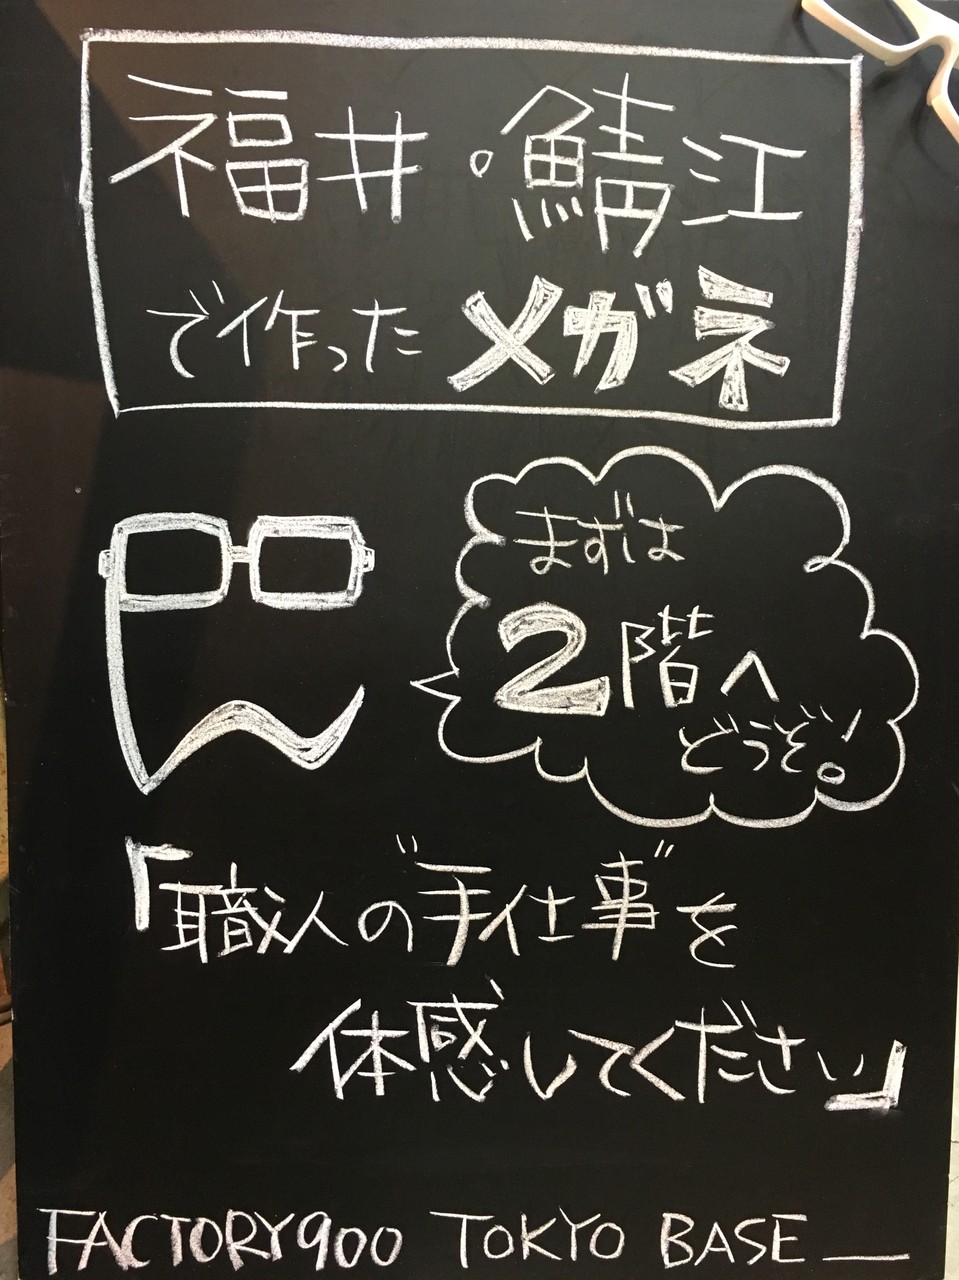 福井・鯖江
で作ったメガネ
まずは
2階へ
どうぞ!
『職人の〝手仕事〟を
体感してください』
FACTORY900 TOKYO BASE